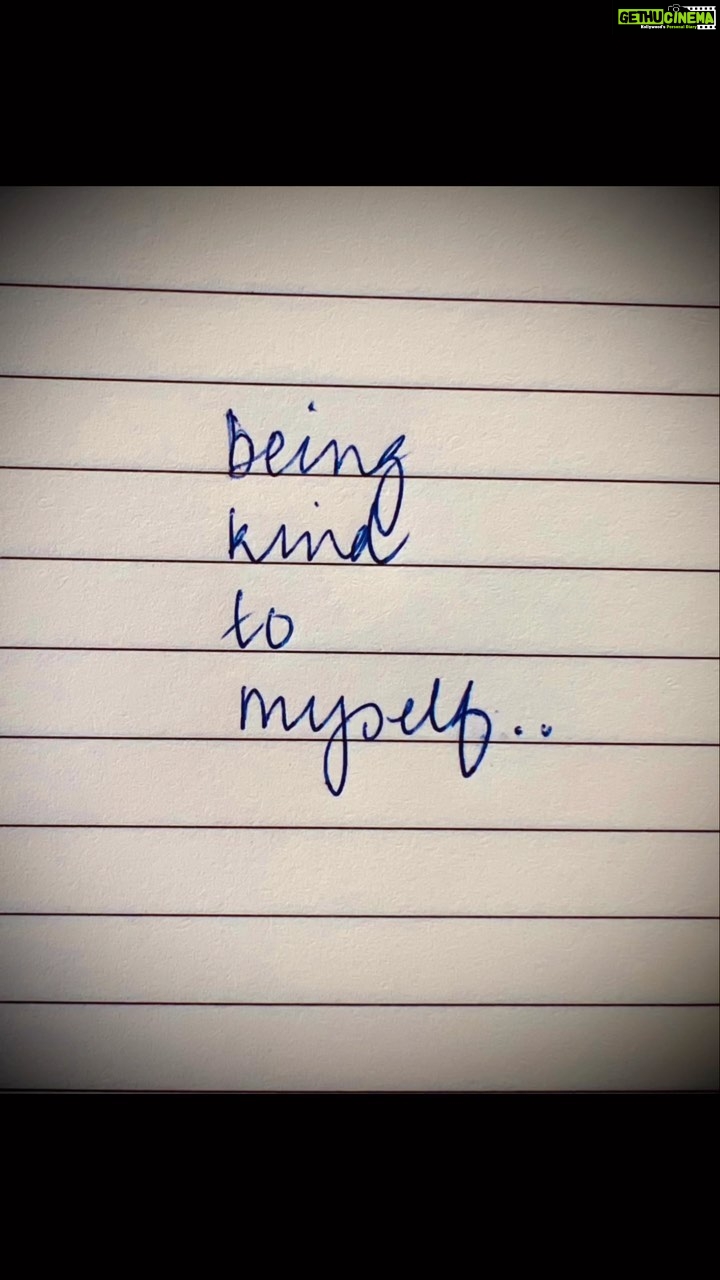 GETHUCINEMA
Kollywood's Personal Diary
being
kind
to
myself..